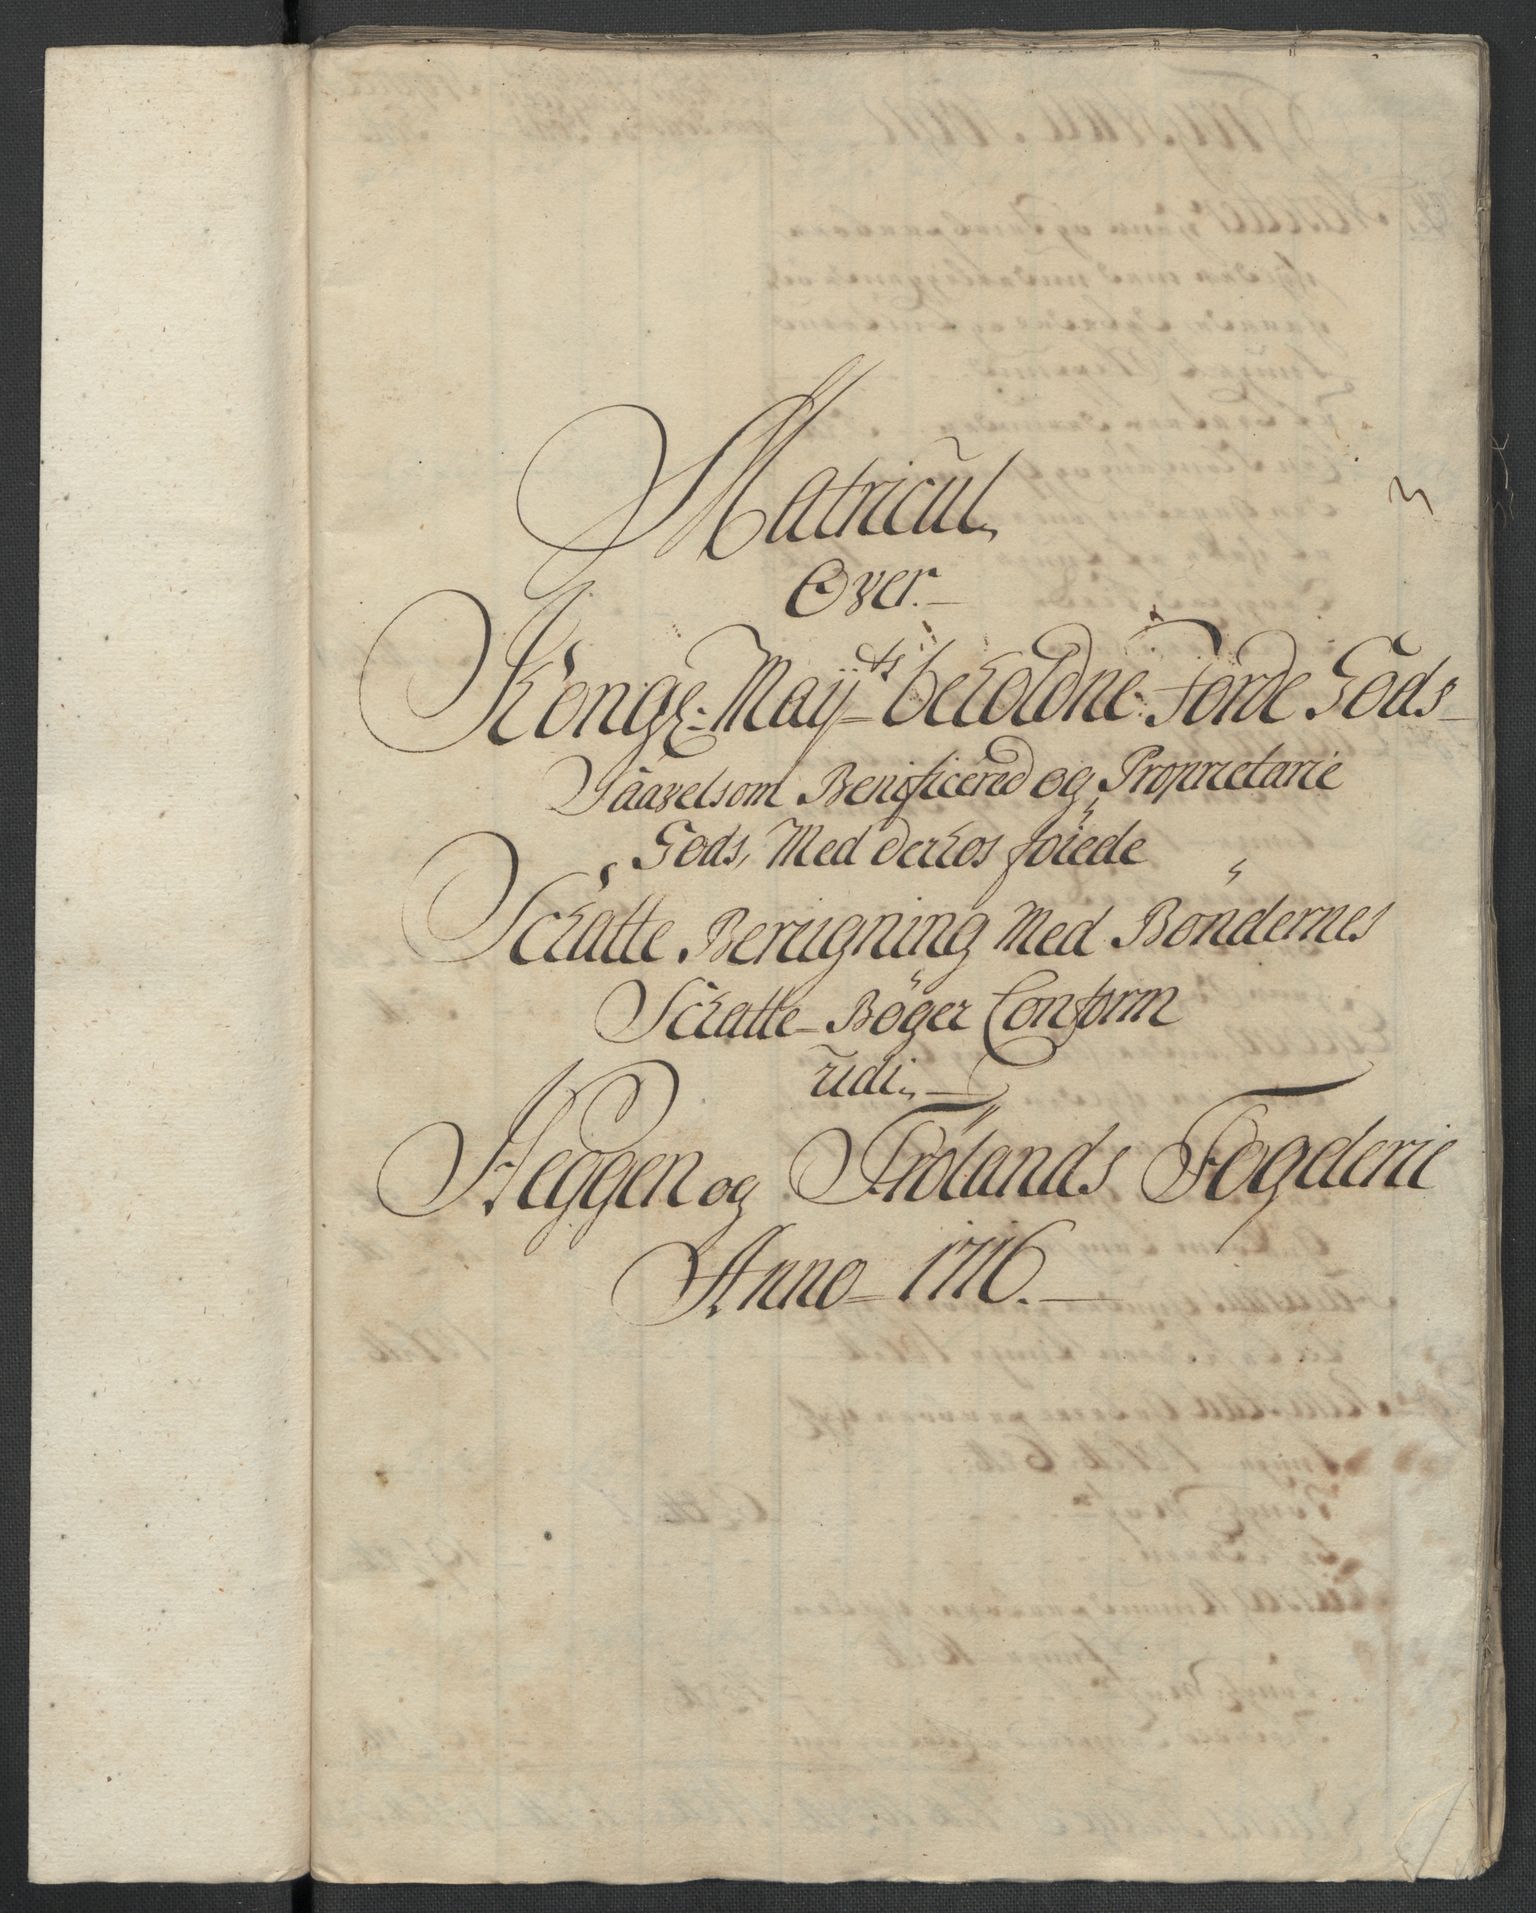 Matricul
Over
Kongl: May:ts beholdne Jorde Gods
Saavelsom Benificered og Proprietarie
Gods, Med derhos föiede
Schatte Bereigning Med Böndernes
Schatte Böger Conform
udi
Heggen og Frölands Fogderie
Anno 1716.